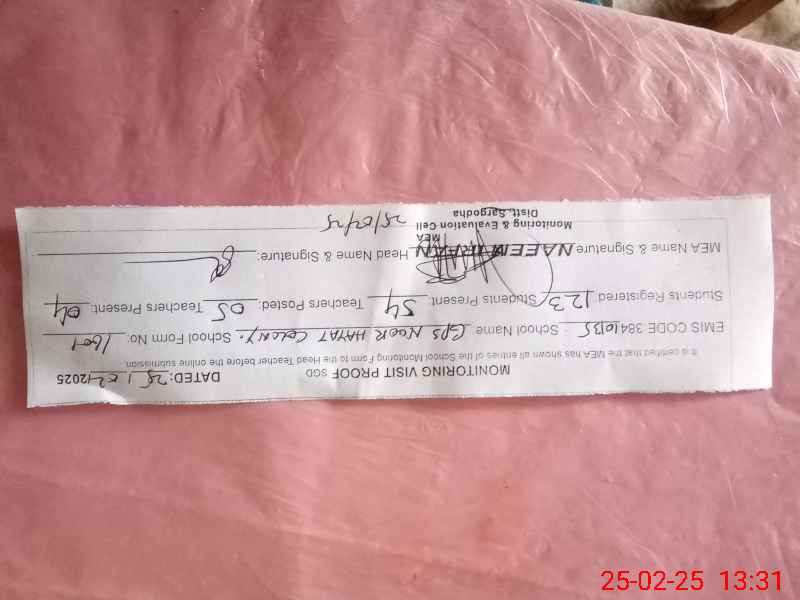 MONITORING VISIT PROOF SGD DATED: 25 / 02 /2025
It is certified that the MEA has shown all entries of the School Monitoring Form to the Head Teacher before the online submission
EMIS CODE 38410135 School Name GPS NOOR HAYAT COLONY. School Form No:
Students Registered: 123 Students Present: 54 Teachers Posted: 05 Teachers Present: 04
MEA Name & Signature: NAEEM Head Name & Signature:
MEA
Monitoring & Evaluation Cell
Distt. Sargodha
25/02/25
25-02-25 13:31